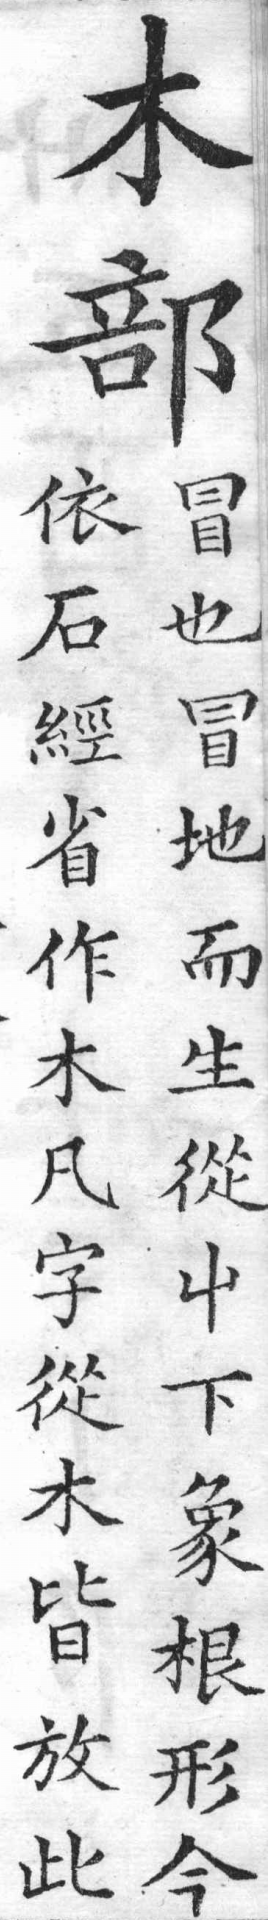 木部
冒也冒地而生從屮下象根形今
依石經省作木凡字從木皆放此